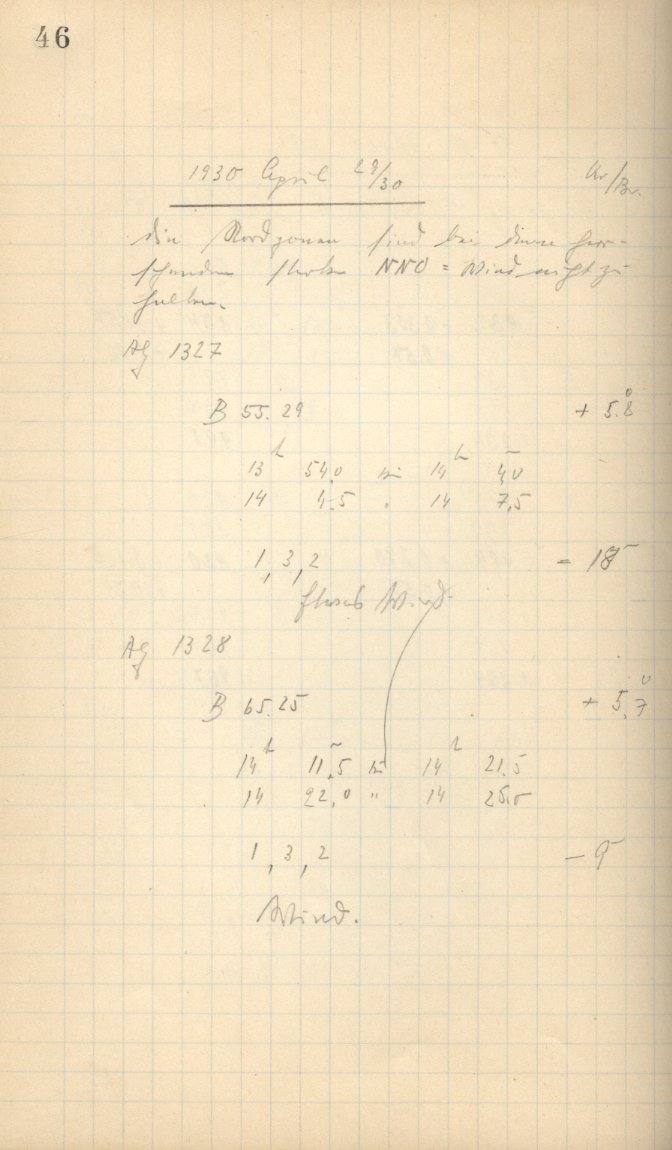 46
1930 April 29/30 Kr/Br.
Die Nordzonen sind bei dem herr-
schenden starken NNO = Wind nicht zu
halten.
AG 1327
B 55.29 + 5.8°
13h 54,0 bis 14h 4,0
14 4.5 " 14 7,5
1, 3, 2 - 18
Wind.
AG 1328
B 65.25 + 5,7°
14h 11,5 bis 14h 21.5
14 22,0 " 14 25.5
1, 3, 2 - 9
Wind.